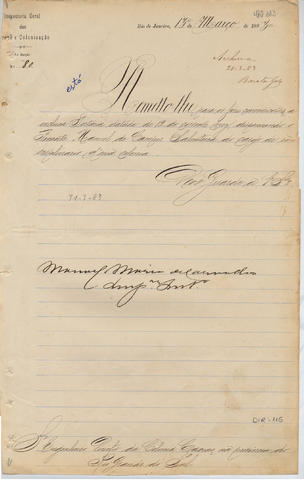 Inspectoria Geral
das
Terras e Colonização
Nº 80
Rio de Janeiro, 18 de Março de 1889
Archive
20-3-89
está
Remetto-lhe para os fins convenientes, a
inclusa Portaria datada de 18 do corrente mez, dispensando o
Tenente Manoel de Campos do cargo de
d'essa colonia.
Deos Guarde a V. Sª
21-3-89
Manoel Maria de Carvalho
Insp. Int.º
DIR-115
Sr. Engenheiro Director da Colonia Caxias, na provincia do
Rio Grande do Sul